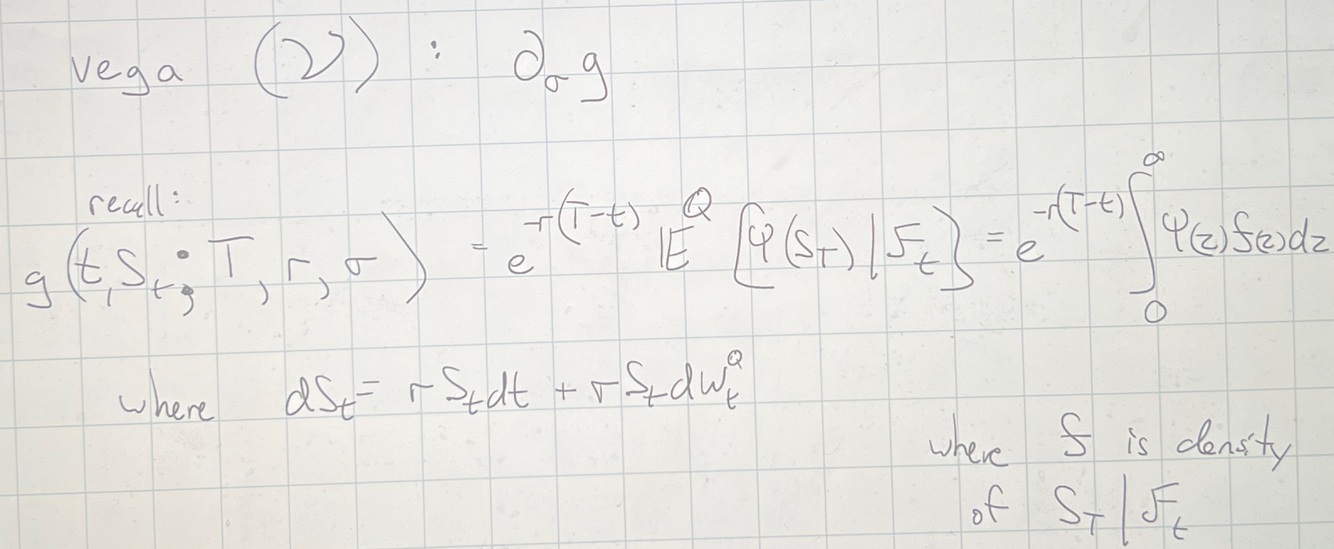 vega (ν) : ∂_σ g
recall:
g(t, S_t; T, r, σ) = e^{-r(T-t)} 𝔼^Q [φ(S_T) | ℱ_t] = e^{-r(T-t)} ∫_0^∞ φ(z) f(z) dz
where dS_t = r S_t dt + σ S_t dW_t^Q
where f is density
of S_T | ℱ_t